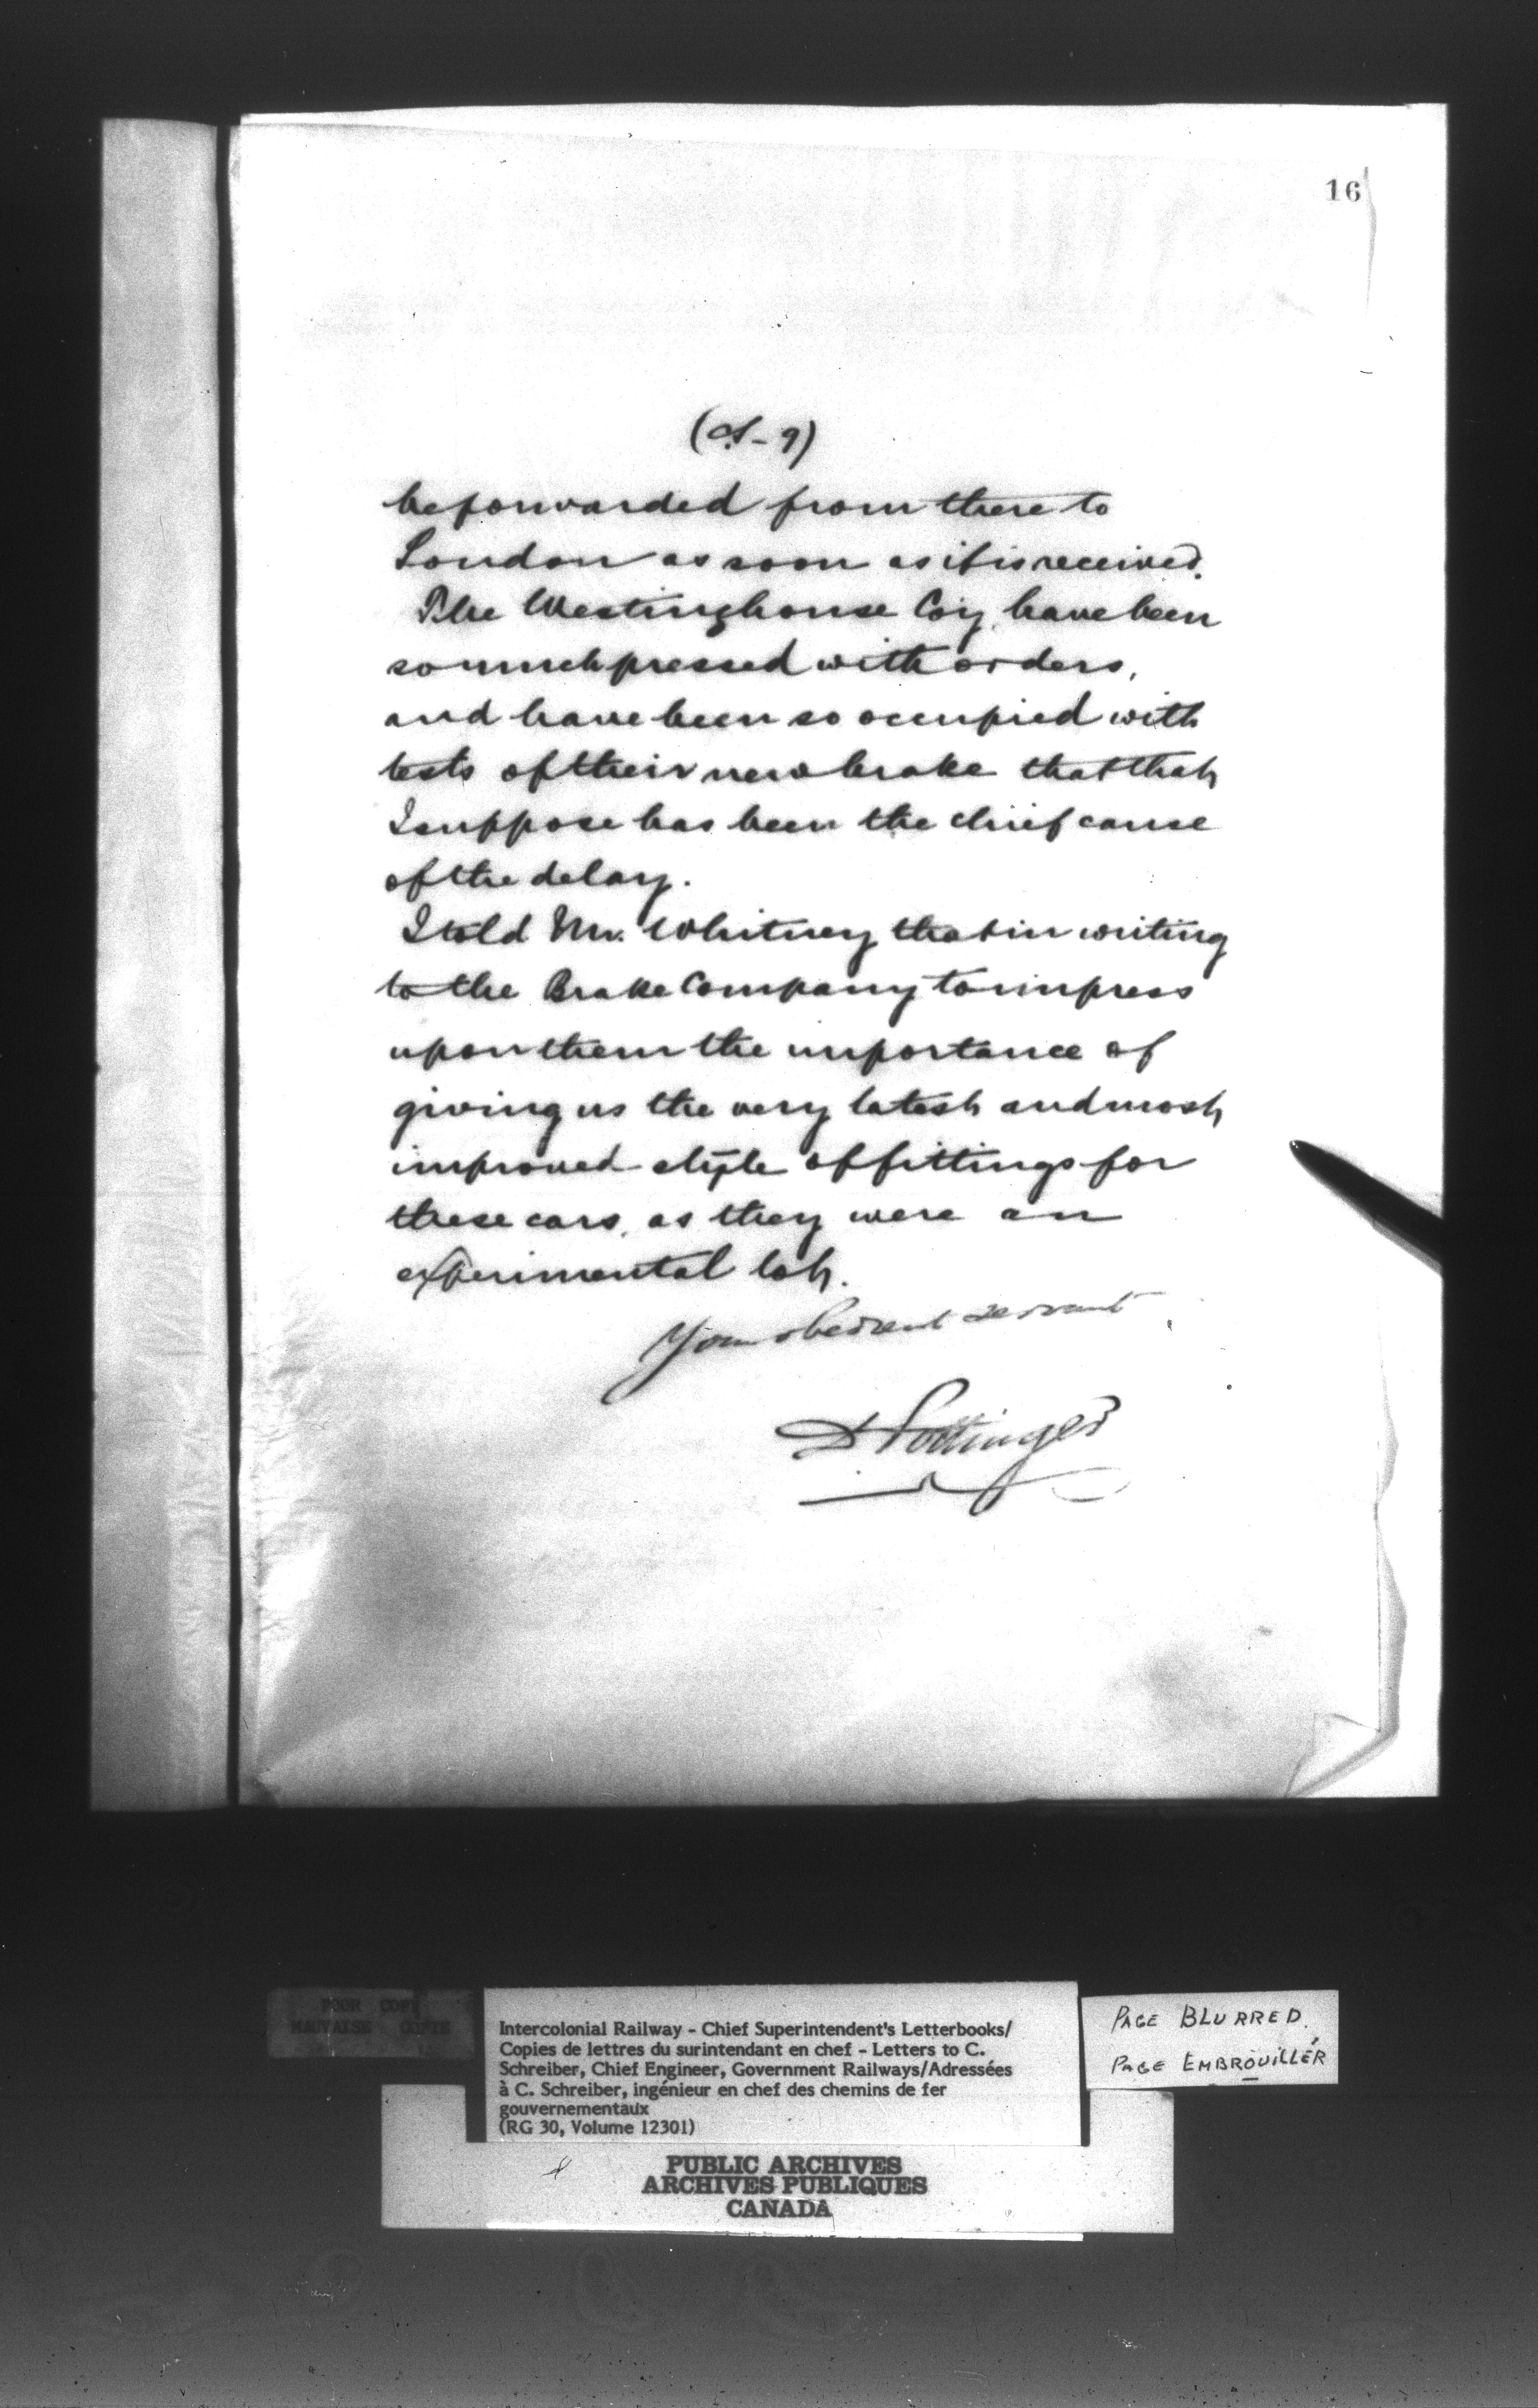 16
be forwarded from there to
London as soon as it is received.
The Westinghouse Coy. have been
so much pressed with orders,
and have been so occupied with
tests of their new brake that that
I suppose has been the chief cause
of the delay.
I told Mr. Whitney that in writing
to the Brake Company to impress
upon them the importance of
giving us the very latest and most
improved style of fittings for
these cars, as they were an
experimental lot.
Your obedient servant
D Pottinger
POOR COPY
MAUVAISE COPIE
Intercolonial Railway - Chief Superintendent's Letterbooks/
Copies de lettres du surintendant en chef - Letters to C.
Schreiber, Chief Engineer, Government Railways/Adressées
à C. Schreiber, ingénieur en chef des chemins de fer
gouvernementaux
(RG 30, Volume 12301)
PAGE BLURRED.
PAGE EMBROUILLÉR
PUBLIC ARCHIVES
ARCHIVES PUBLIQUES
CANADA